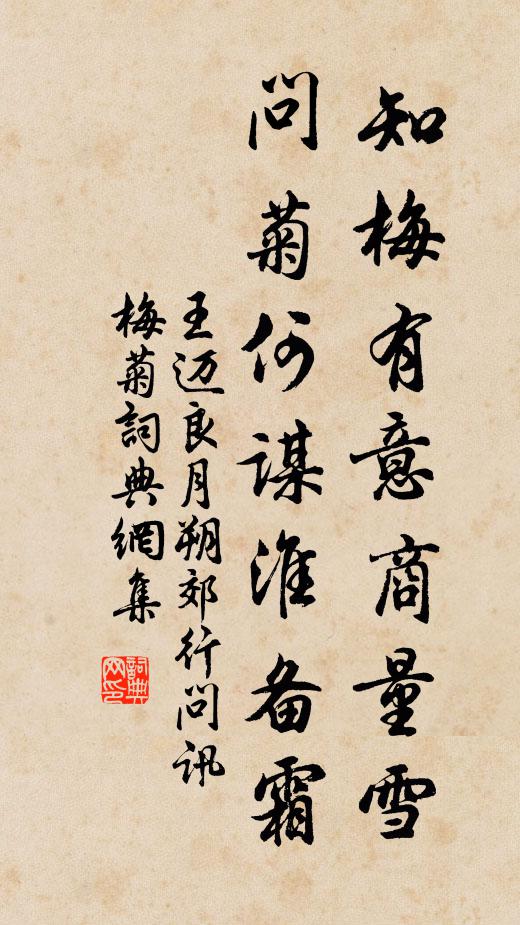 知梅有意商量雪
问菊何谋淮备霜
王迈良月朔郊行问讯
梅菊詞典網集
詞典
网印